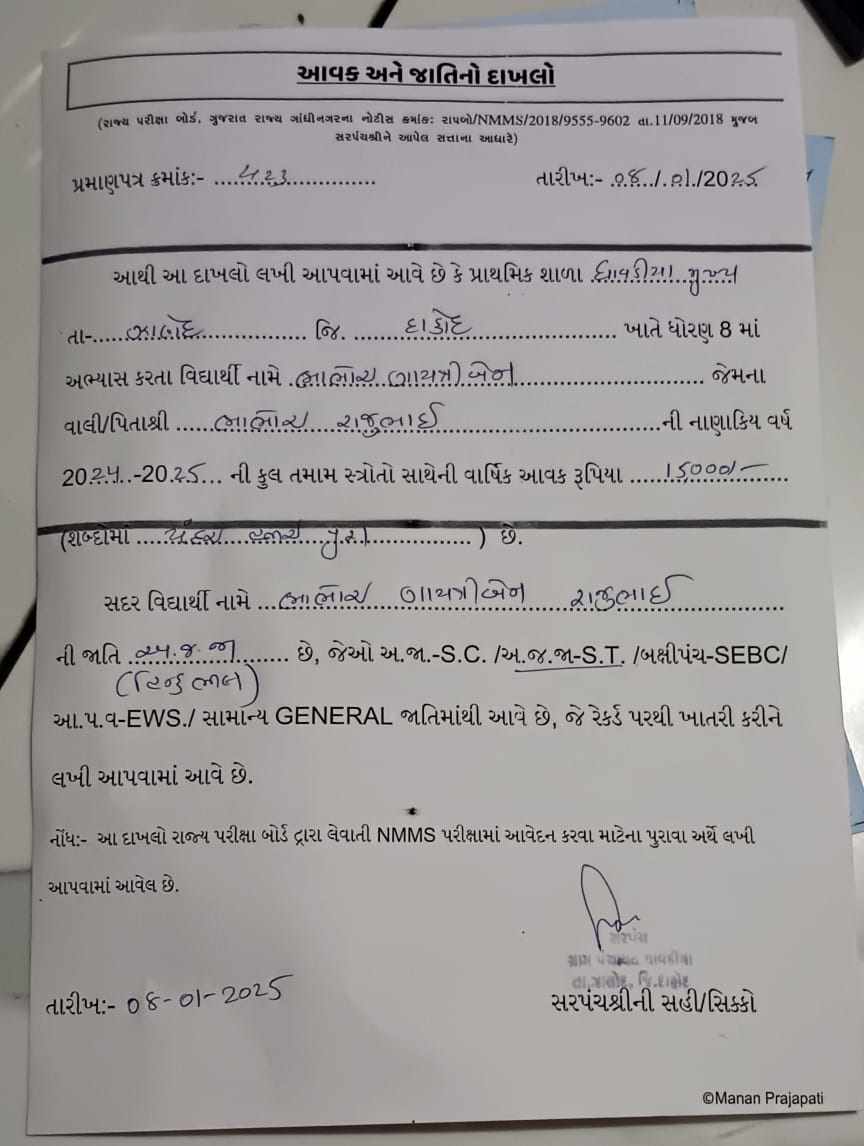 આવક અને જાતિનો દાખલો
(રાજ્ય પરીક્ષા બોર્ડ, ગુજરાત રાજ્ય ગાંધીનગરના નોટીસ ક્રમાંક: રાપબો/NMMS/2018/9555-9602 તા.11/09/2018 મુજબ
સરપંચશ્રીને આપેલ સત્તાના આધારે)
પ્રમાણપત્ર ક્રમાંક:- ......૫૨૩...............
તારીખ:- .08../.01./2025
આથી આ દાખલો લખી આપવામાં આવે છે કે પ્રાથમિક શાળા .ધાવડીયા..મુખ્ય
તા-.....ઝાલોદ................ જિ. ........દાહોદ..................... ખાતે ધોરણ 8 માં
અભ્યાસ કરતા વિદ્યાર્થી નામે .ભાભોર ગાયત્રીબેન........................... જેમના
વાલી/પિતાશ્રી ......ભાભોર....રાજુભાઈ...............................ની નાણાકિય વર્ષ
2024..-2025... ની કુલ તમામ સ્ત્રોતો સાથેની વાર્ષિક આવક રૂપિયા ......15000/-......
(શબ્દોમાં ....પંદર....હજાર....પુરા.................) છે.
સદર વિદ્યાર્થી નામે ...ભાભોર ગાયત્રીબેન રાજુભાઈ................
ની જાતિ .અ.જ.જા........ છે, જેઓ અ.જા.-S.C. /અ.જ.જા-S.T. /બક્ષીપંચ-SEBC/
(હિન્દુ ભીલ)
આ.પ.વ-EWS./ સામાન્ય GENERAL જાતિમાંથી આવે છે, જે રેકર્ડ પરથી ખાતરી કરીને
લખી આપવામાં આવે છે.
નોંધ:- આ દાખલો રાજ્ય પરીક્ષા બોર્ડ દ્વારા લેવાતી NMMS પરીક્ષામાં આવેદન કરવા માટેના પુરાવા અર્થે લખી
આપવામાં આવેલ છે.
સરપંચ
ગ્રામ પંચાયત ધાવડીયા
તા.ઝાલોદ, જિ.દાહોદ
તારીખ:- 08-01-2025
સરપંચશ્રીની સહી/સિક્કો
©Manan Prajapati